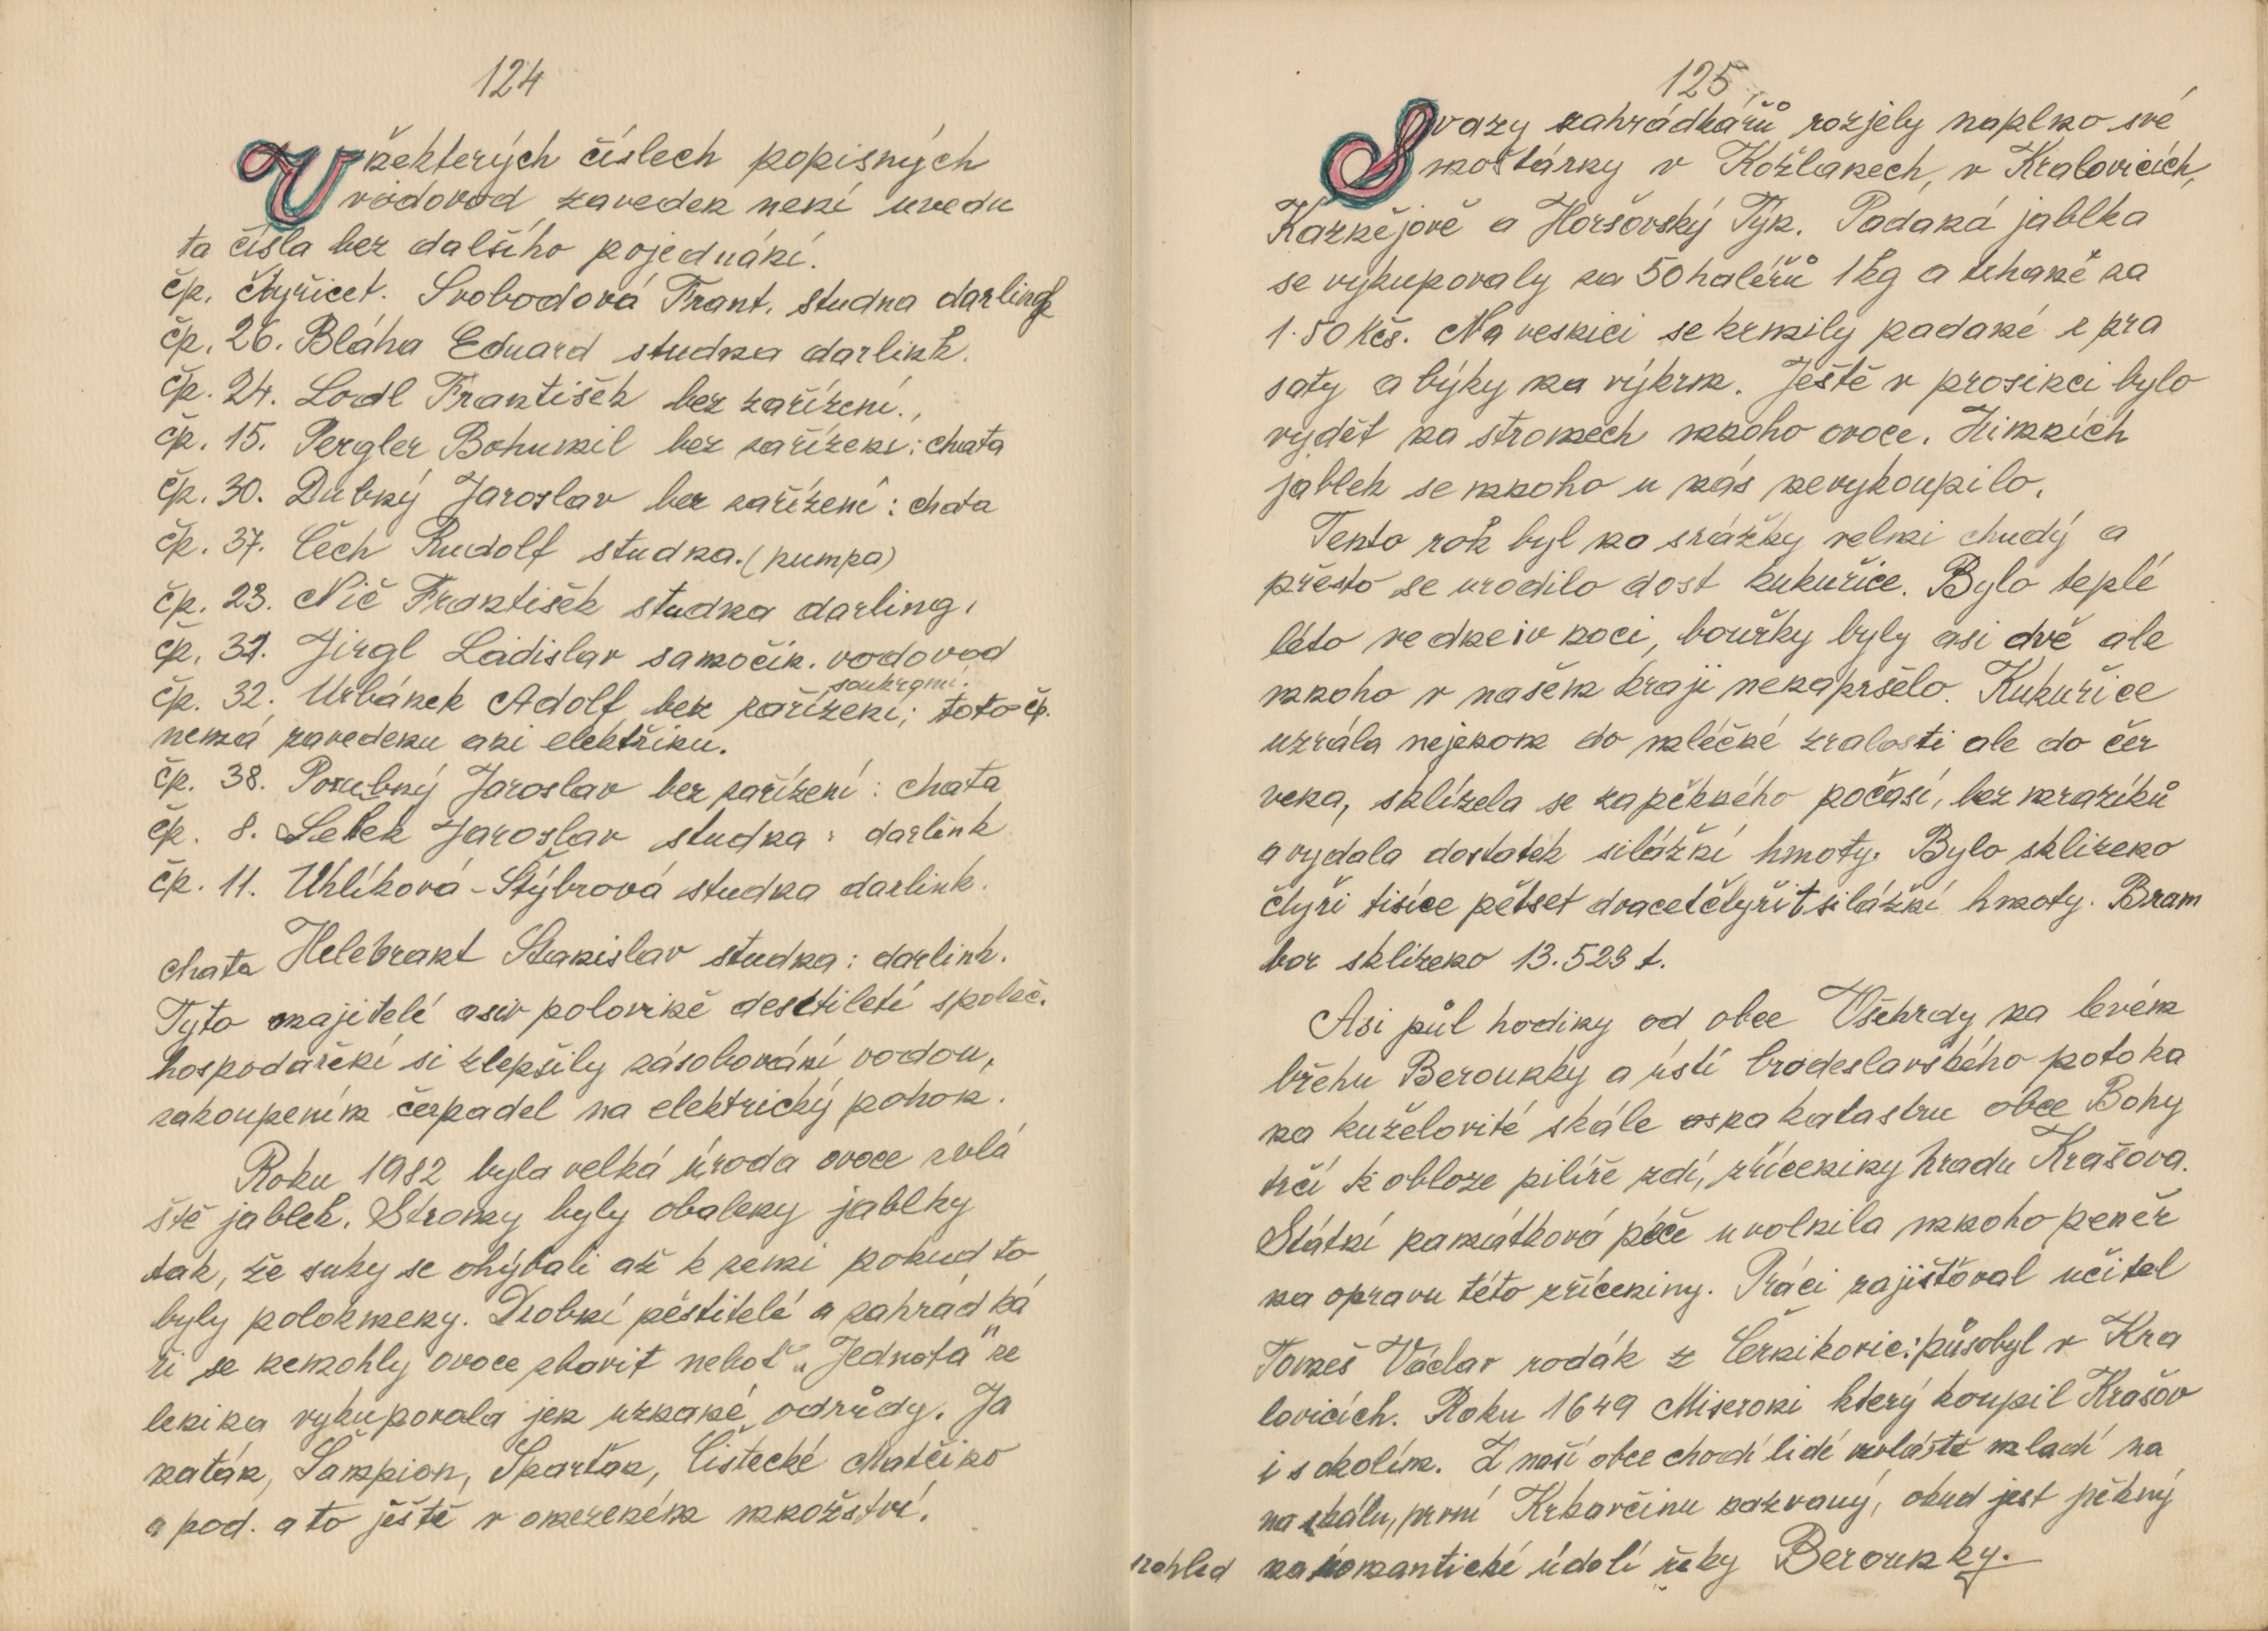 124
V některých číslech popisných
vodovod zaveden není uvedu
ta čísla bez dalšího pojednání.
čp. čtyřicet. Svobodová Frant. studna darling
čp. 26. Bláha Eduard studna darlink.
čp. 24. Lodl František bez zařízení.,
čp. 15. Pergler Bohumil bez zařízení: chata
čp. 30. Dubný Jaroslav bez zařízení: chata
čp. 37. Čech Rudolf studna. (pumpa)
čp. 23. Nič František studna darling,
čp. 31. Jirgl Ladislav samočin. vodovod
soukromí.
čp. 32. Urbánek Adolf bez zařízení; toto čp.
nemá zavedenu ani elektřinu.
čp. 38. Porubný Jaroslav bez zařízení: chata
čp. 8. Lelek Jaroslav studna: darlink
čp. 11. Uhlíková - Štýbrová studna darlink.
chata Helebrant Stanislav studna: darlink.
Tyto majitelé asiv polovině desítiletí společ.
hospodaření si zlepšily zásobování vodou,
zakoupením čerpadel na elektrický pohon.
Roku 1982 byla velká úroda ovoce zvlá
ště jablek. Stromy byly obaleny jablky
tak, že suky se ohýbali až k zemi pokud to
byly polokmeny. Drobní pěstitelé a zahrádká
ři se nemohly ovoce zbavit neboť „Jednota" ze
lenina vykupovala jen uznané odrůdy. Ja
natán, Šampion, Sparťan, Čistecké Matčino
a pod. a to ještě v omezeném množství.
125
Svazy zahrádkářů rozjely naplno své
moštárny v Kožlanech, v Kralovicích,
Kaznějově a Horšovský Týn. Padaná jablka
se vykupovaly za 50 haléřů 1 kg a trhané za
1.50 Kčs. Na vesnici se krmily padané s pra
saty a býky na výkrm. Ještě v prosinci bylo
vydět na stromech mnoho ovoce. Zimních
jablek se mnoho u nás nevykoupilo.
Tento rok byl na srážky velmi chudý a
přesto se urodilo dost kukuřice. Bylo teplé
léto ve dne iv noci, bouřky byly asi dvě ale
mnoho v našem kraji nenapršelo. Kukuřice
uzrála nejenom do mléčné zralosti ale do čer
vena, sklízela se zapěkného počasí, bez mrazíků
a vydala dostatek silážní hmoty. Bylo sklizeno
čtyři tisíce pětset dvacetčtyři t silážní hmoty. Bram
bor sklizeno 13.523 t.
Asi půl hodiny od obce Všehrdy na levém
břehu Berounky a ústí brodeslavského potoka
na kuželovité skále na katastru obce Bohy
trčí k obloze pilíře zdí, zříceniny hradu Krašova.
Státní památková péče uvolnila mnoho peněz
na opravu této zříceniny. Práci zajišťoval učitel
Tomeš Václav rodák z Černíkovic: působyl v Kra
lovicích. Roku 1649 Miseroni který koupil Krašov
i s okolím. Z naší obce chodí lidé zvláště mladí na
na skálu, první Krkavčinu nazvaný, okud jest pěkný
pohled na romantické údolí řeky Berounky.